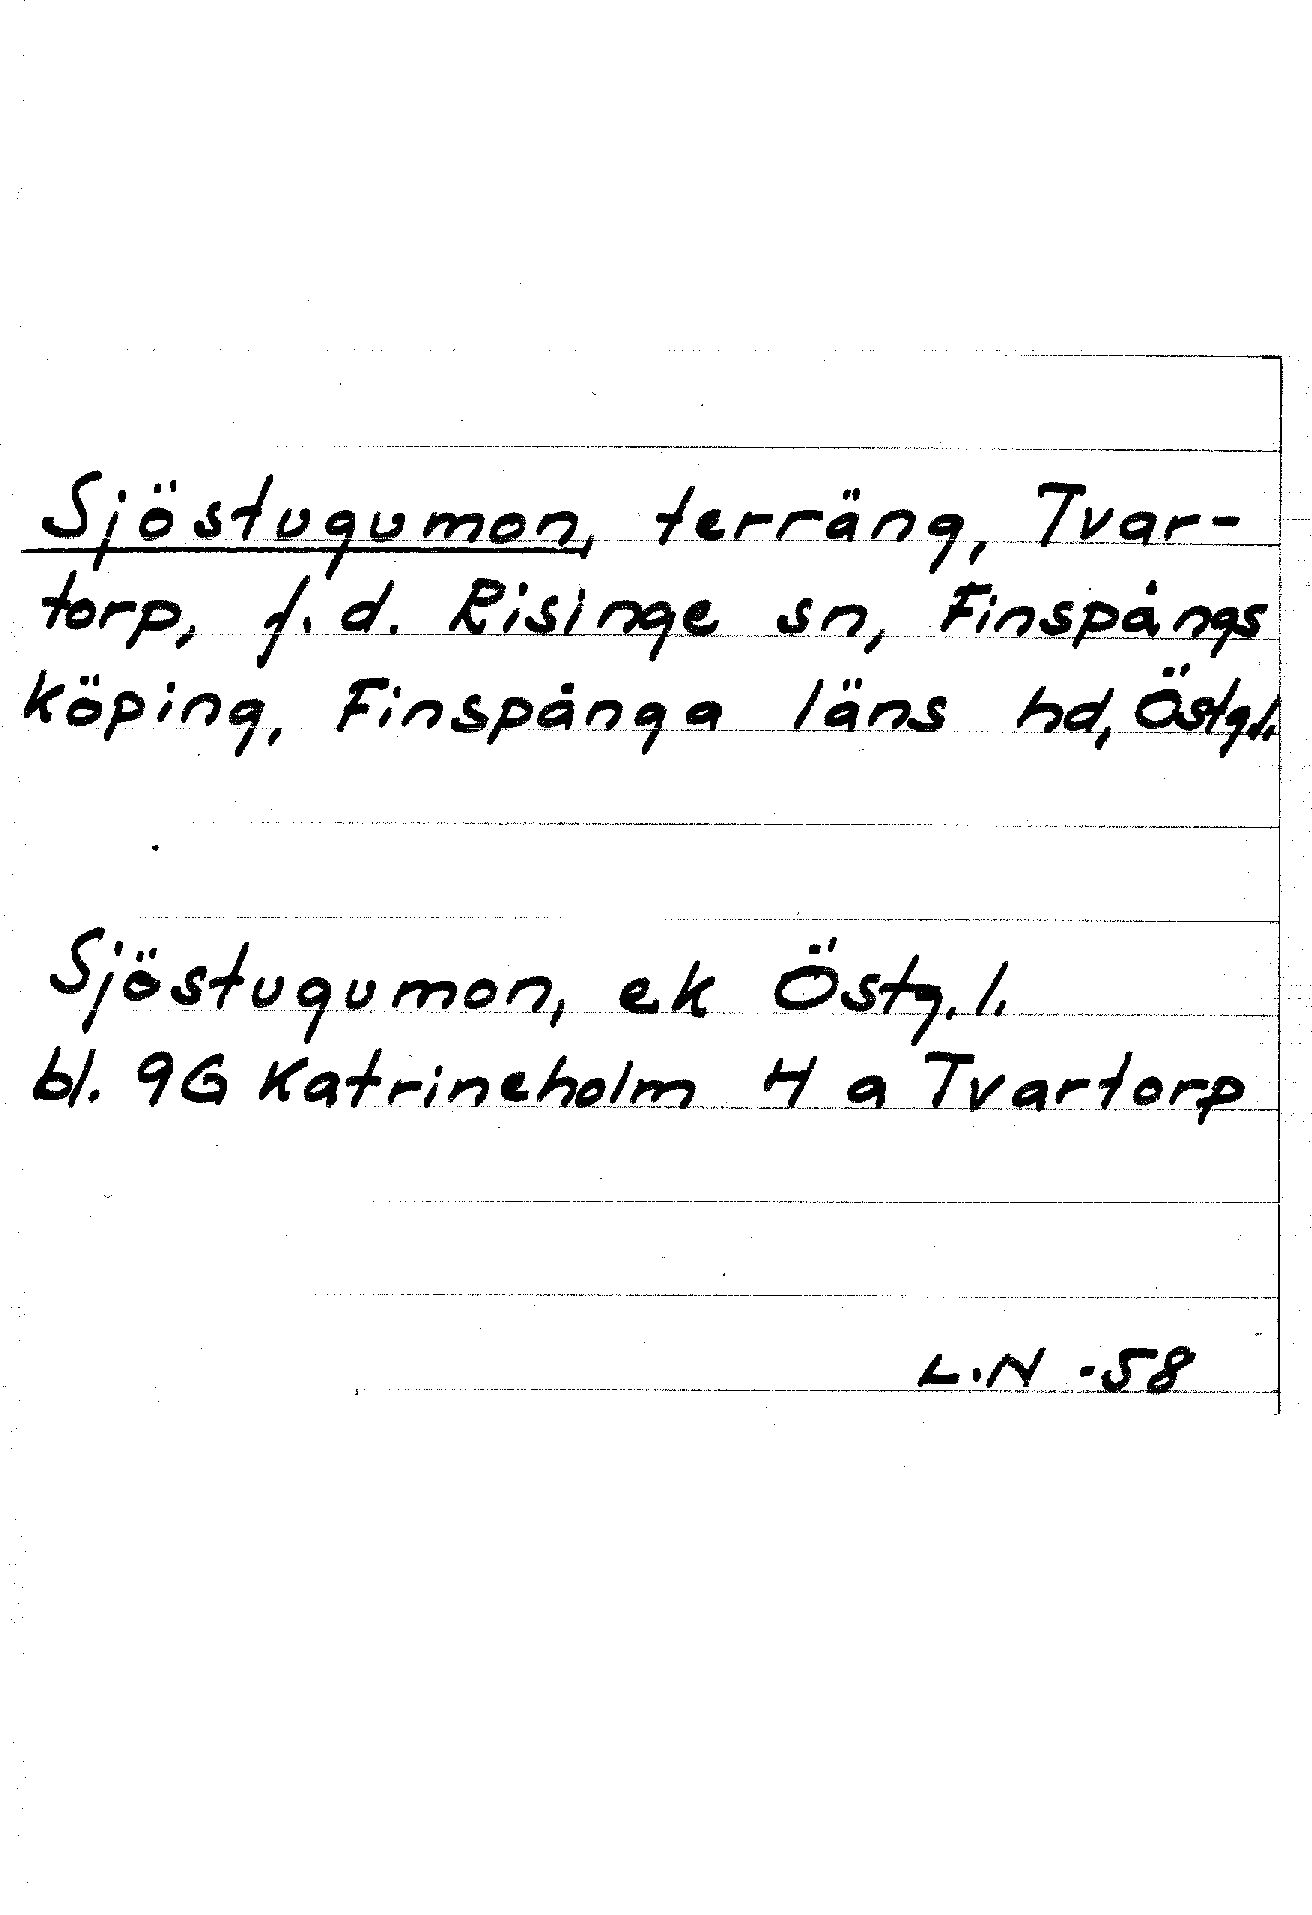 Sjöstugumon, terräng, Tvar-
torp, f.d. Risinge sn, Finspångs
köping, Finspånga läns hd, Östg.l.
Sjöstugumon, ek Östg.l.
bl. 9G Katrineholm H a Tvartorp
L.N -58